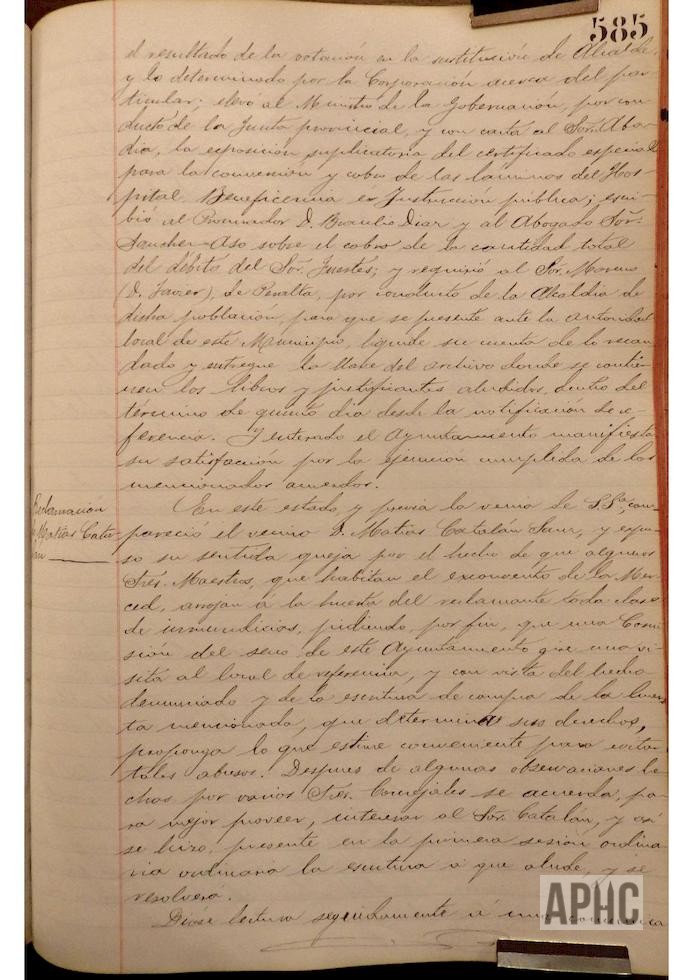 585
el resultado de la votación en la sustitución de Alcalde,
y lo determinado por la Corporación acerca del par-
ticular; elevó al Ministro de la Gobernación, por con-
ducto de la Junta provincial, y con carta al Sor. Aba-
dia, la exposición suplicatoria del certificado especial
para la conversión y cobro de las láminas del Hos-
pital, Beneficencia é Instrucción pública; escri-
bió al Procurador D. Braulio Diaz y al Abogado Sor.
Sanchez-Aso sobre el cobro de la cantidad total
del débito del Sor. Fuertes; y requirió al Sor. Moreno
(D. Javier), de Peralta, por conducto de la Alcaldía de
dicha población, para que se presente ante la autoridad
local de este Municipio, liquide su cuenta de lo recau-
dado y entregue la llave del archivo donde se contie-
nen los libros y justificantes aludidos, dentro del
término de quinto dia desde la notificación de re-
ferencia. Y enterado el Ayuntamiento manifiesta
su satisfacción por la ejecución cumplida de los
mencionados acuerdos.
Reclamación
de Matías Cata-
lán
En este estado, y previa la venia de S.Sa., com-
pareció el vecino D. Matías Catalán Sanz, y expu-
so su sentida queja por el hecho de que algunos
Sres. Maestros, que habitan el exconvento de la Mer-
ced, arrojan á la huerta del reclamante toda clase
de inmundicias, pidiendo, por fin, que una Comi-
sión del seno de este Ayuntamiento gire una vi-
sita al local de referencia, y con vista del hecho
denunciado y de la escritura de compra de la huer-
ta mencionada, que determina sus derechos,
proponga lo que estime conveniente para evitar
tales abusos. Despues de algunas observaciones he-
chas por varios Sres. Concejales se acuerda, pa-
ra mejor proveer, interesar al Sor. Catalán, y así
se hizo, presente en la primera sesión ordina-
ria ordinaria la escritura á que alude, y se
resolverá.
Dióse lectura seguidamente á una comunica
APHC